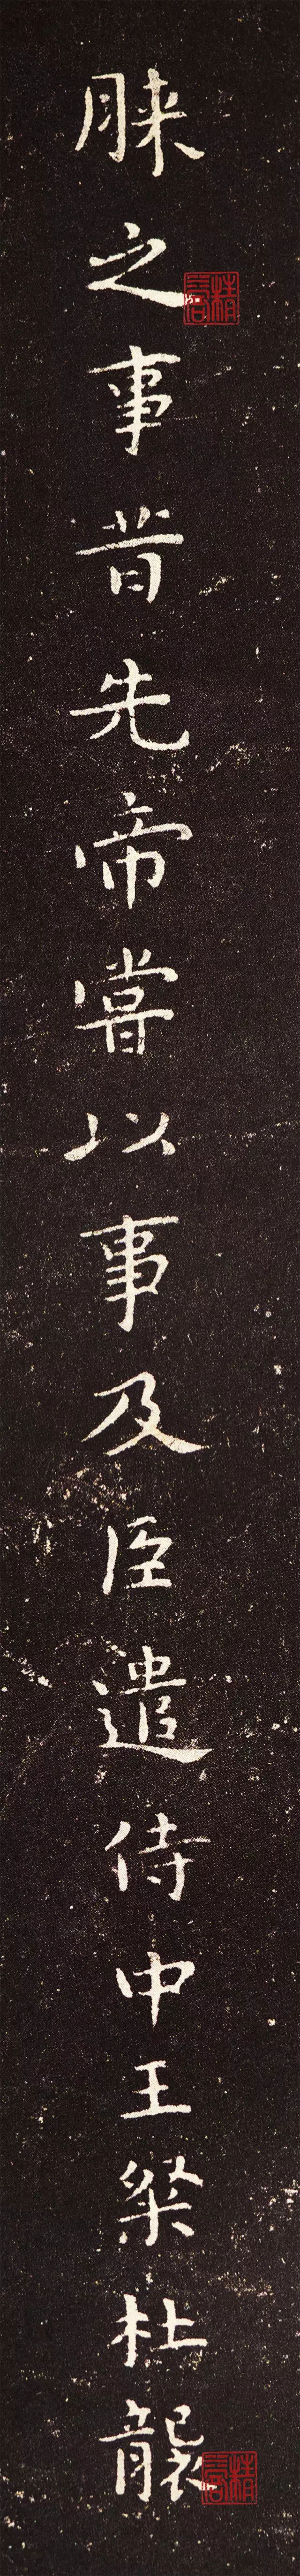 之事昔先帝嘗以事及臣遣侍中王粲杜襲